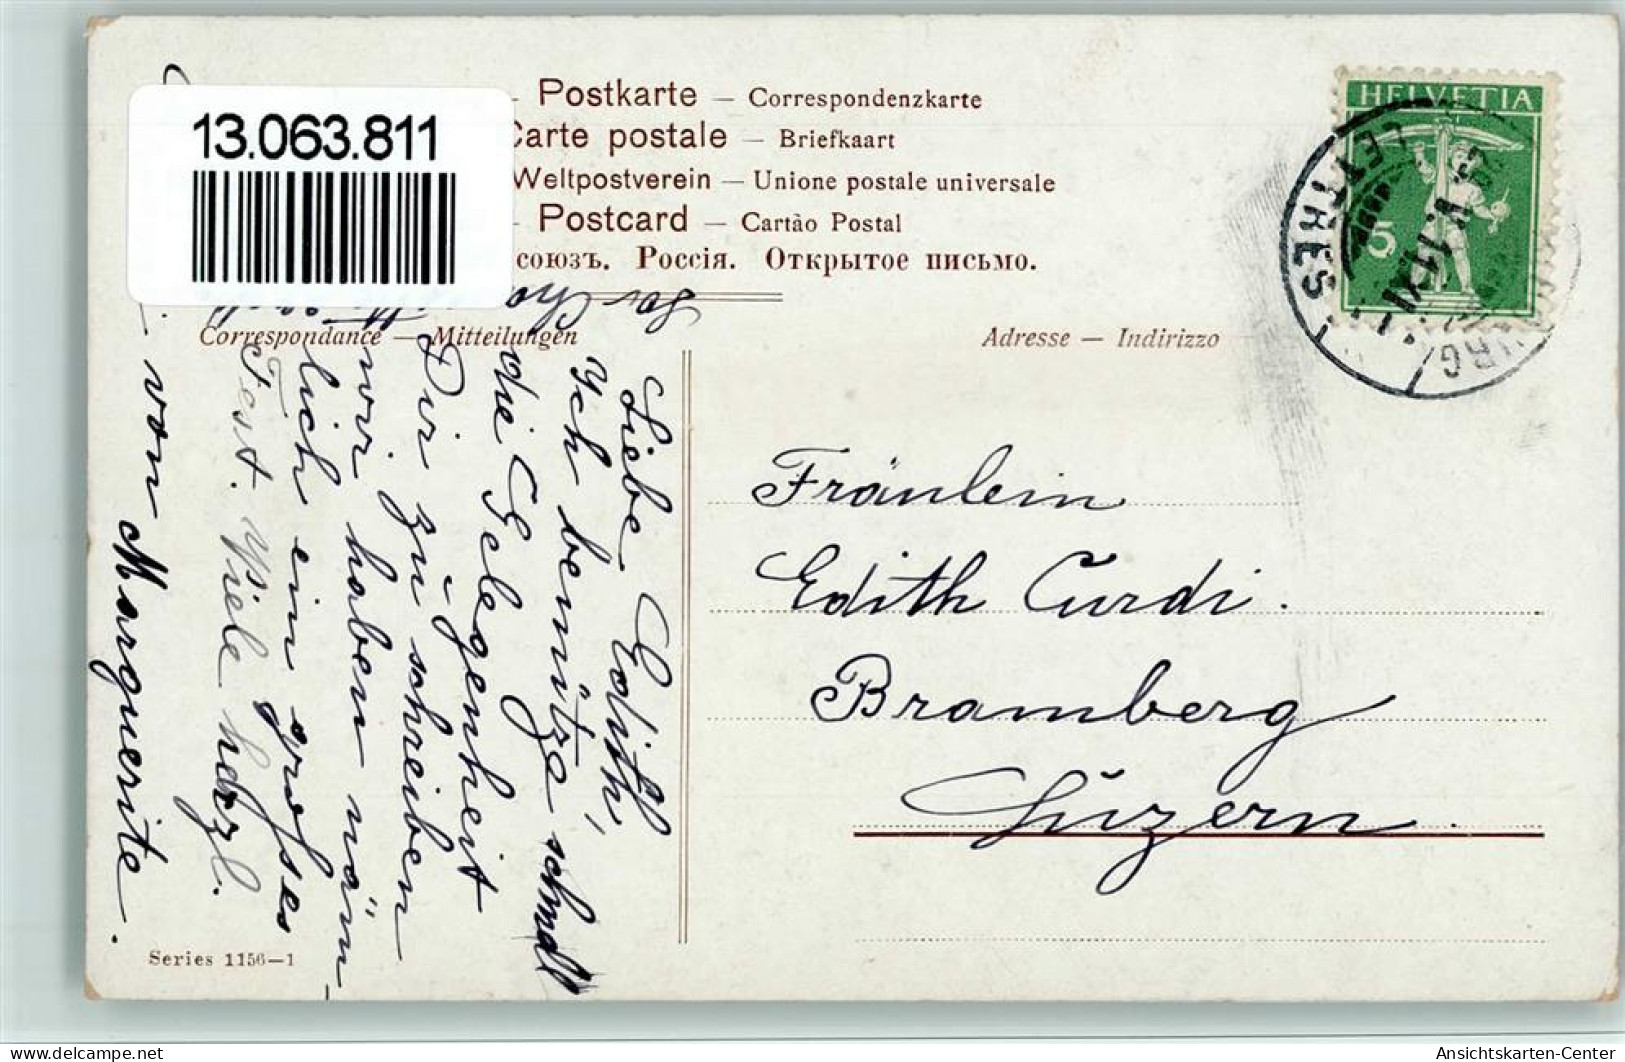 Postkarte — Correspondenzkarte
Carte postale — Briefkaart
Weltpostverein — Unione postale universale
Postcard — Cartão Postal
союзъ. Россія. Открытое письмо.
13.063.811
HELVETIA
5
LETTRES
Correspondance — Mitteilungen
Adresse — Indirizzo
Liebe Edith,
Ich benütze schnell
die Gelegenheit
Dir zu schreiben
wir haben näm-
lich ein grosses
Fest. Viele herzl.
von Marguerite.
Fräulein
Edith Curdi.
Bramberg
Luzern.
Series 1156—1
www.delcampe.net
Ansichtskarten-Center